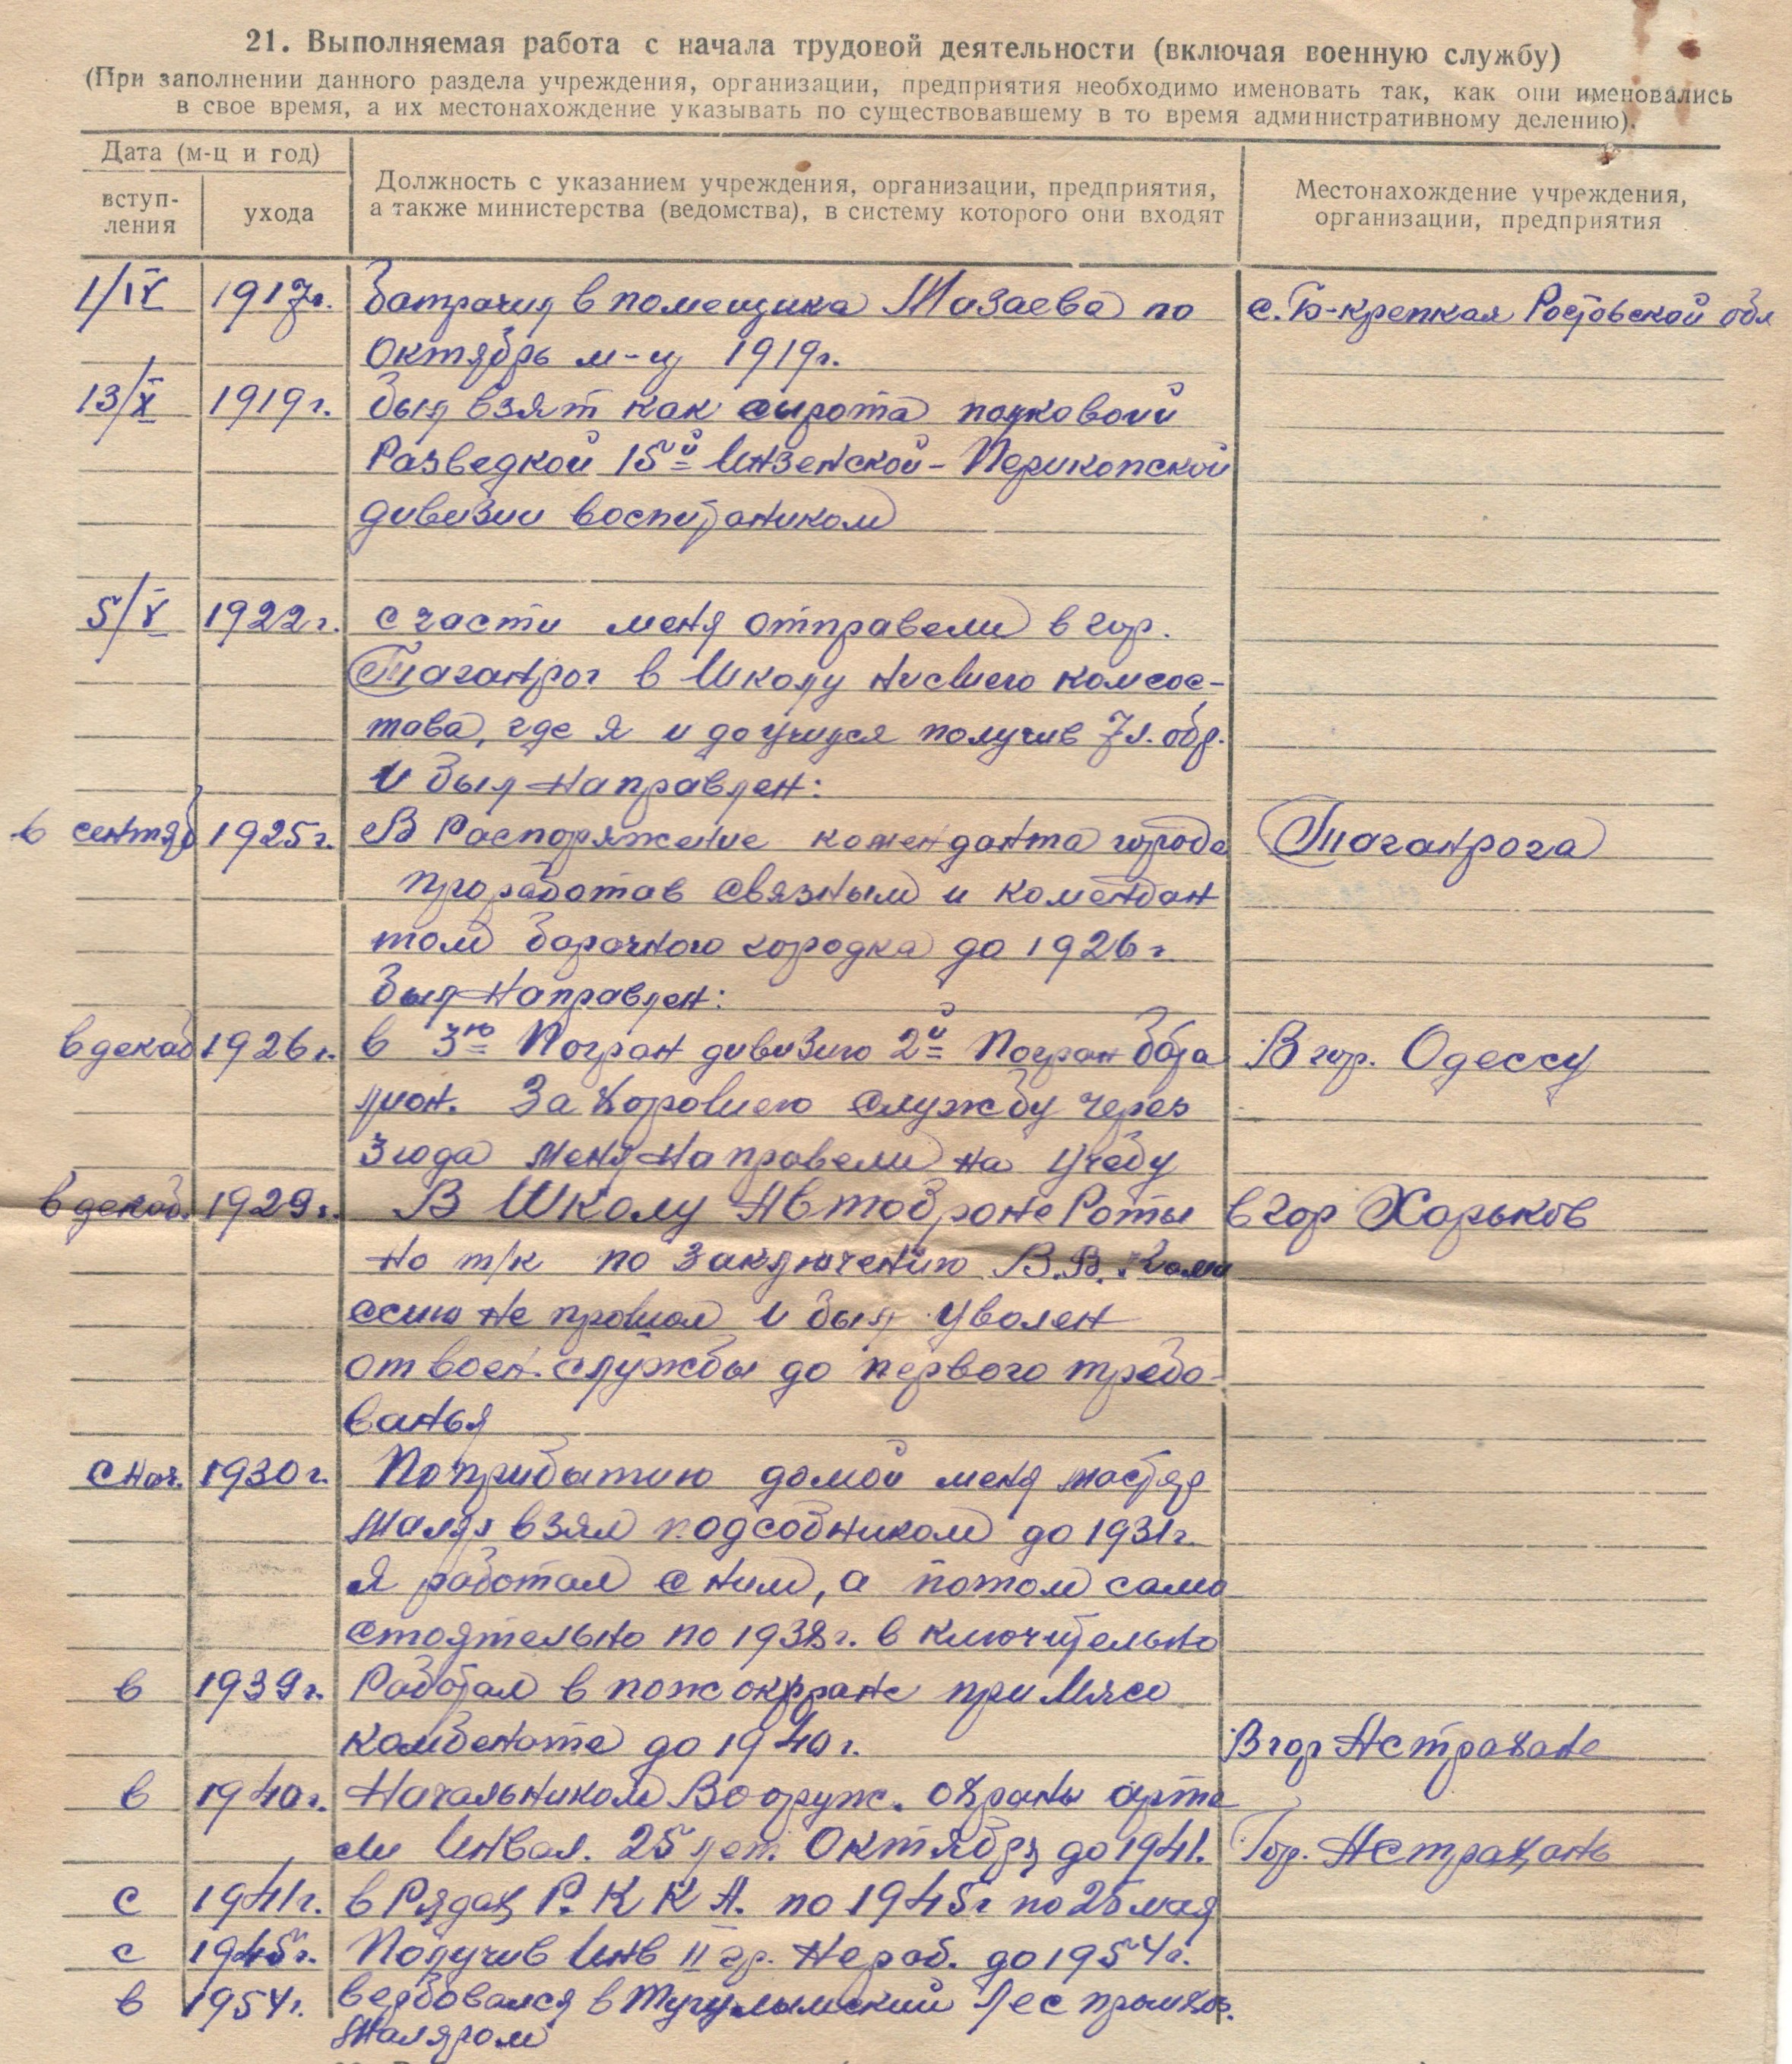 21. Выполняемая работа с начала трудовой деятельности (включая военную службу)
(При заполнении данного раздела учреждения, организации, предприятия необходимо именовать так, как они именовались
в свое время, а их местонахождение указывать по существовавшему в то время административному делению).
Дата (м-ц и год)
вступ-
ления
ухода
Должность с указанием учреждения, организации, предприятия,
а также министерства (ведомства), в систему которого они входят
Местонахождение учреждения,
организации, предприятия
1/IV 1917г. Батрачил в помещика Мазаева по с. Б-крепкая Ростовской обл
Октябрь м-ц 1919г.
13/X 1919г. Был взят как сирота полковой
Разведкой 15й Инзенской-Перикопской
дивизии воспитаником
5/V 1922г. с части меня отправели в гор.
Таганрог в Школу нисшего комсос-
тава, где я и доучился получив 7л. обр.
и был направлен:
в сентяб 1925г. В Распоряжение комендантa города Таганрога
проработав связным и комендан
том барачного городка до 1926г
был направлен:
в декаб 1926г. в 3ю Погран дивизию 2й Погран бата В гор. Одессу
лион. За хорошею службу через
3 года меня направели на учебу
в декаб. 1929г. В Школу Автоброне Роты в гор Харьков
но т/к по заключению В.В. Коми
ссию не прошол и был уволен
от воен. службы до первого требо-
ванья
с нач. 1930г. По прибытию домой меня мастер
маляр взял подсобником до 1931г.
Я работал с ним, а потом само
стоятельно по 1938г. в ключительно
в 1939г. Работал в пож охране при Мясо
комбенате до 1940г. В гор Астрахане
в 1940г. Начальником Вооруж. охраны арте
ли Инвал. 25 лет Октября до 1941. Гор. Астрахань
с 1941г. в Рядах Р.К.К.А. по 1945г по 25 мая
с 1945г. Получив Инв II гр. Не раб. до 1954г.
в 1954г. вербовался в Тугулымский Леспромхоз.
Маляром